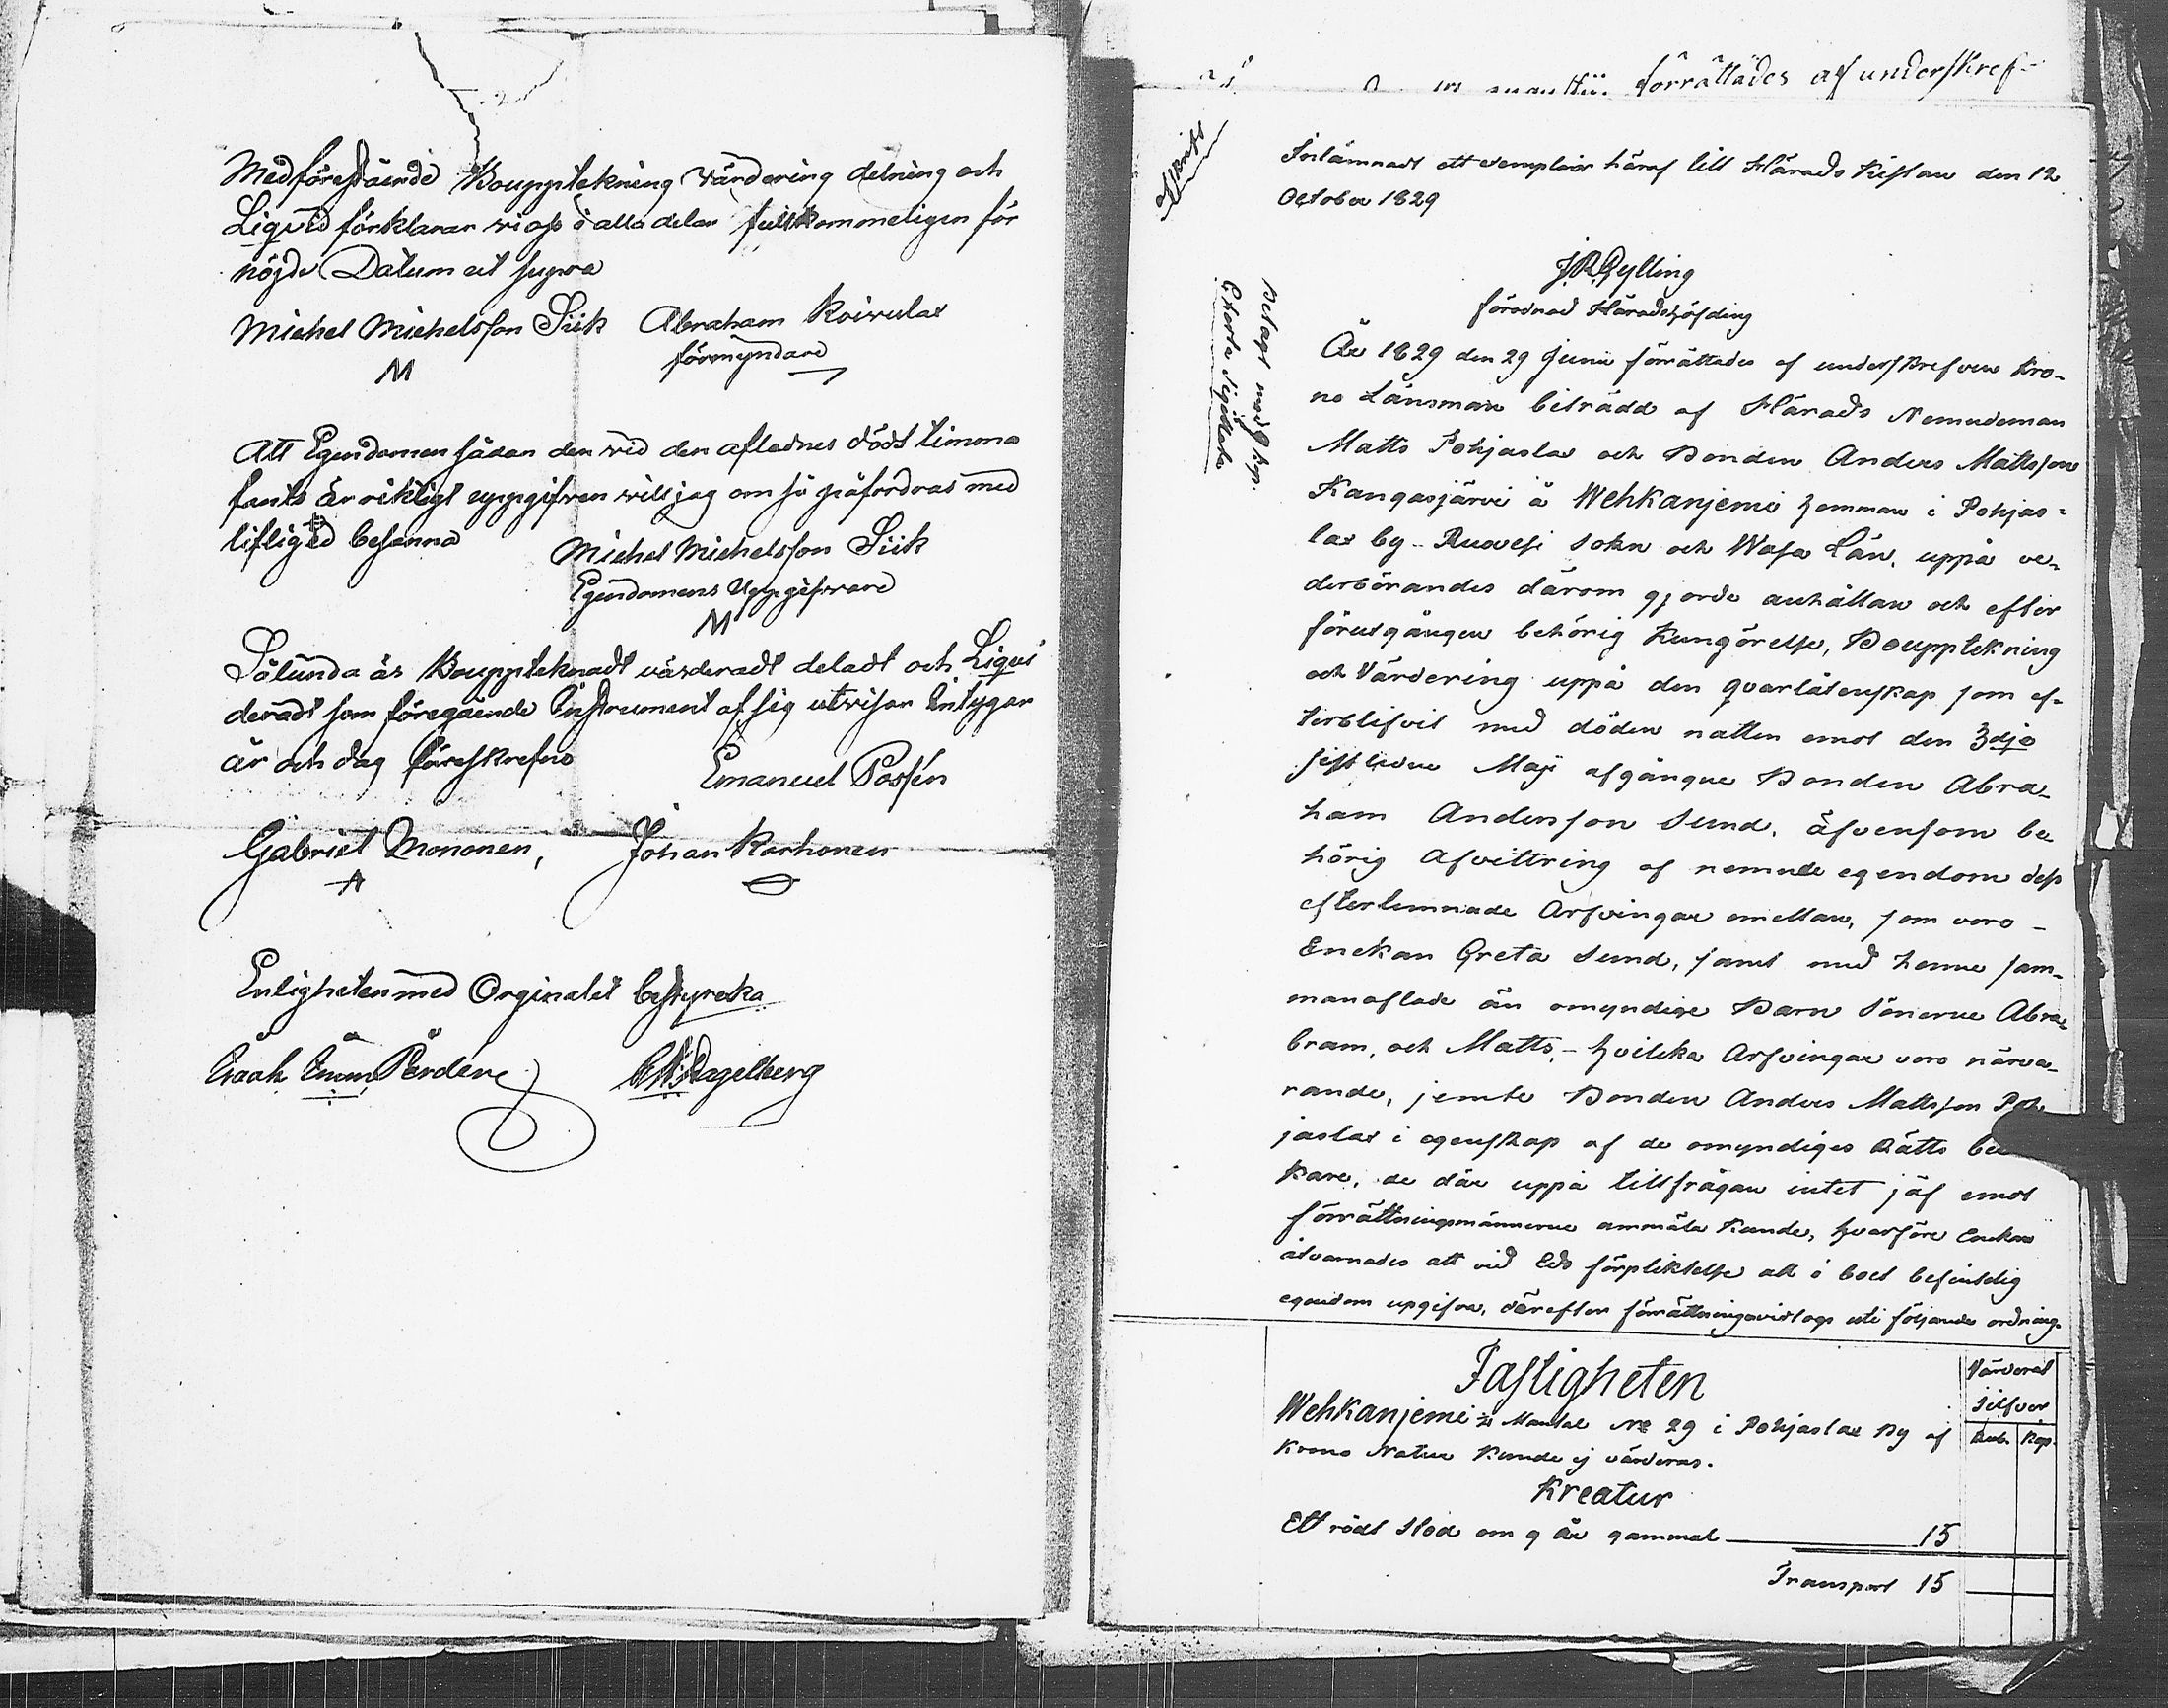 Med föreståënde Bouppteckning Värdering delning och
Liqvid förklarar wi ofs i alla delar fullkommeligen för
nöjde Datum ut supra
Michel Michelsson Siik Abraham Koivulax
M förmyndare
Att Egendomen sådan den wid den aflednes död timma
fants är riktigt uppgifwen will jag om så påfordras med
lifligEd besanna
Michel Michelsson Siik
Egendomens Uppgifware
M
Sålunda är Bouppteknadt värderadt deladt och Liqvi
deradt som föregående Instrument af sig utvisar Intygar
år och dag föreskrefne
Emanuel Possén
Gabriel Mononen, Johan Korhonen
Enligheten med Orginalet bestyrcka
Isaak Pärden Hagelberg
förrättades af underskref-
Afskrift
Inlämnadt ett exemplar häraf till Härads Kistan den 12
October 1829
J.R. Gylling
förodnad Häradshöfding
Betagt med 9 Kop.
Charta Sigillata
År 1829 den 29 Junii förrättades af underskrefven Kro-
no Länsman beträdd af Härads Nemndeman
Matts Pohjaslax och Bonden Anders Mattsson
Kangasjärvi å Wehkanjemi hemman i Pohjas-
lax by Ruovesi Sokn och Wasa Län, uppå ve-
derbörandes därom gjorde anhållan och efter
förutgången behörig Kungörelse, Bouppteckning
och Värdering uppå den qvarlåtenskap som ef-
terblifvit med döden natten emot den 3dje
sistledne Maji afgångne Bonden Abra-
ham Andersson Sund, äfvensom be
hörig Afvittring af nemnde egendom dess
efterlemnade Arfvingar emellan, som voro -
Enckan Greta Sund, samt med henne sam-
manaflade än omyndige Barn Sönerne Abra-
bram, och Matts, - hvilcka Arfvingar voro närva-
rande, jemte Bonden Anders Mattsson Poh-
jaslax i egenskap af de omyndiges Rätts be
kare, de där uppå tillfrågan intet jäf emot
förrättningsmännerne anmäla Kunde, hvarföre Enckan
åtvarnades att vid Eds förpliktelse all i boet befintelig
egendom upgifva, därefter förrättningen vidtogs uti följande ordning.
Fastigheten
Värderat
Silfver
Rub. Kop.
Wehkanjemi Mantal No 29 i Pohjaslax By af
Krono Natur Kunde ej värderas.
Kreatur
Ett rödt Stod om 9 År gammal 15
Transport 15